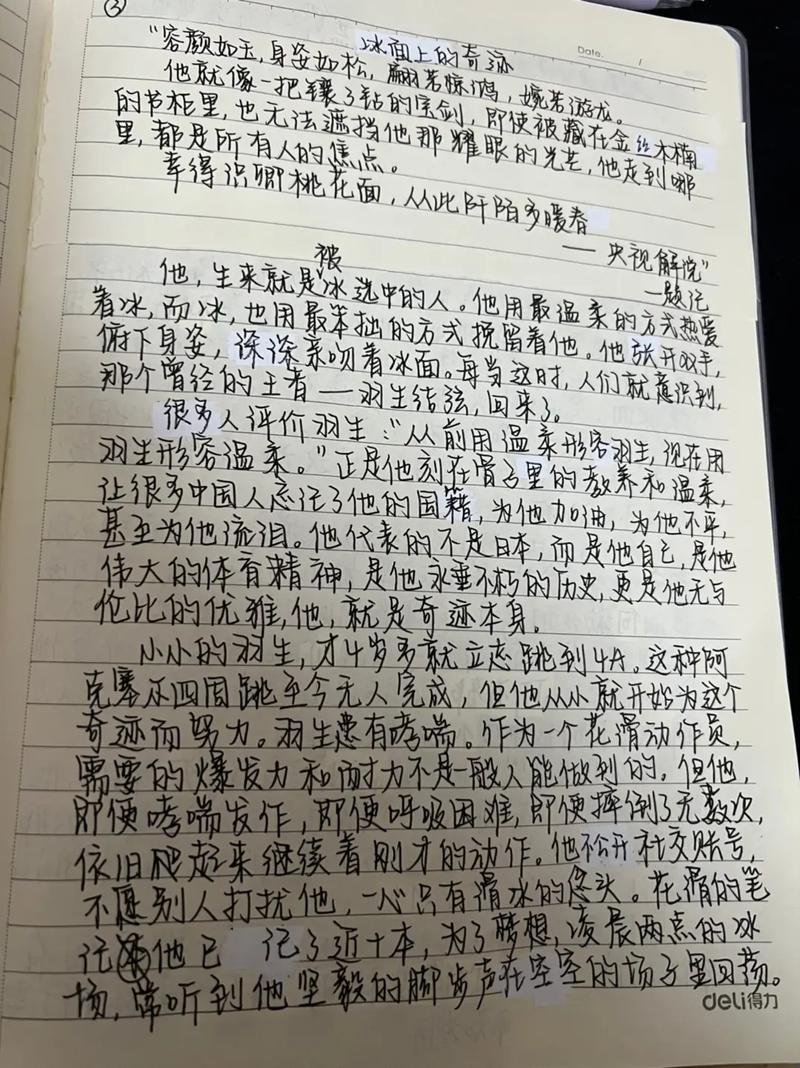 ③
Date. /
冰面上的奇迹
“容颜如玉,身姿如松,翩若惊鸿,婉若游龙。
他就像一把镶了钻的宝剑,即使被藏在金丝木楠
的书柜里,也无法遮挡他那耀眼的光芒,他走到哪
里,都是所有人的焦点。
幸得识卿桃花面,从此阡陌多暖春
— 央视解说”
—题记
他,生来就是被冰选中的人。他用最温柔的方式热爱
着冰,而冰,也用最笨拙的方式挽留着他。他张开双手,
俯下身姿,深深亲吻着冰面。每当这时,人们就意识到,
那个曾经的王者——羽生结弦,回来了。
很多人评价羽生:“从前用温柔形容羽生,现在用
羽生形容温柔。”正是他刻在骨子里的教养和温柔,
让很多中国人忘记了他的国籍,为他加油,为他不平,
甚至为他流泪。他代表的不是日本,而是他自己,是他
伟大的体育精神,是他永垂不朽的历史,更是他无与
伦比的优雅,他,就是奇迹本身。
小小的羽生,才4岁多就立志跳到4A,这种阿
克塞尔四周跳至今无人完成,但他从小就开始为这个
奇迹而努力。羽生患有哮喘。作为一个花滑动作员,
需要的爆发力和耐力不是一般人能做到的。但他,
即便哮喘发作,即便呼吸困难,即便摔倒了无数次,
依旧爬起来继续着刚才的动作。他不公开社交账号,
不愿别人打扰他,一心只有滑冰的念头。花滑的笔
记他已 记了近十本,为了梦想,凌晨两点的冰
场,常听到他坚毅的脚步声在空空的场子里回荡。
deli得力